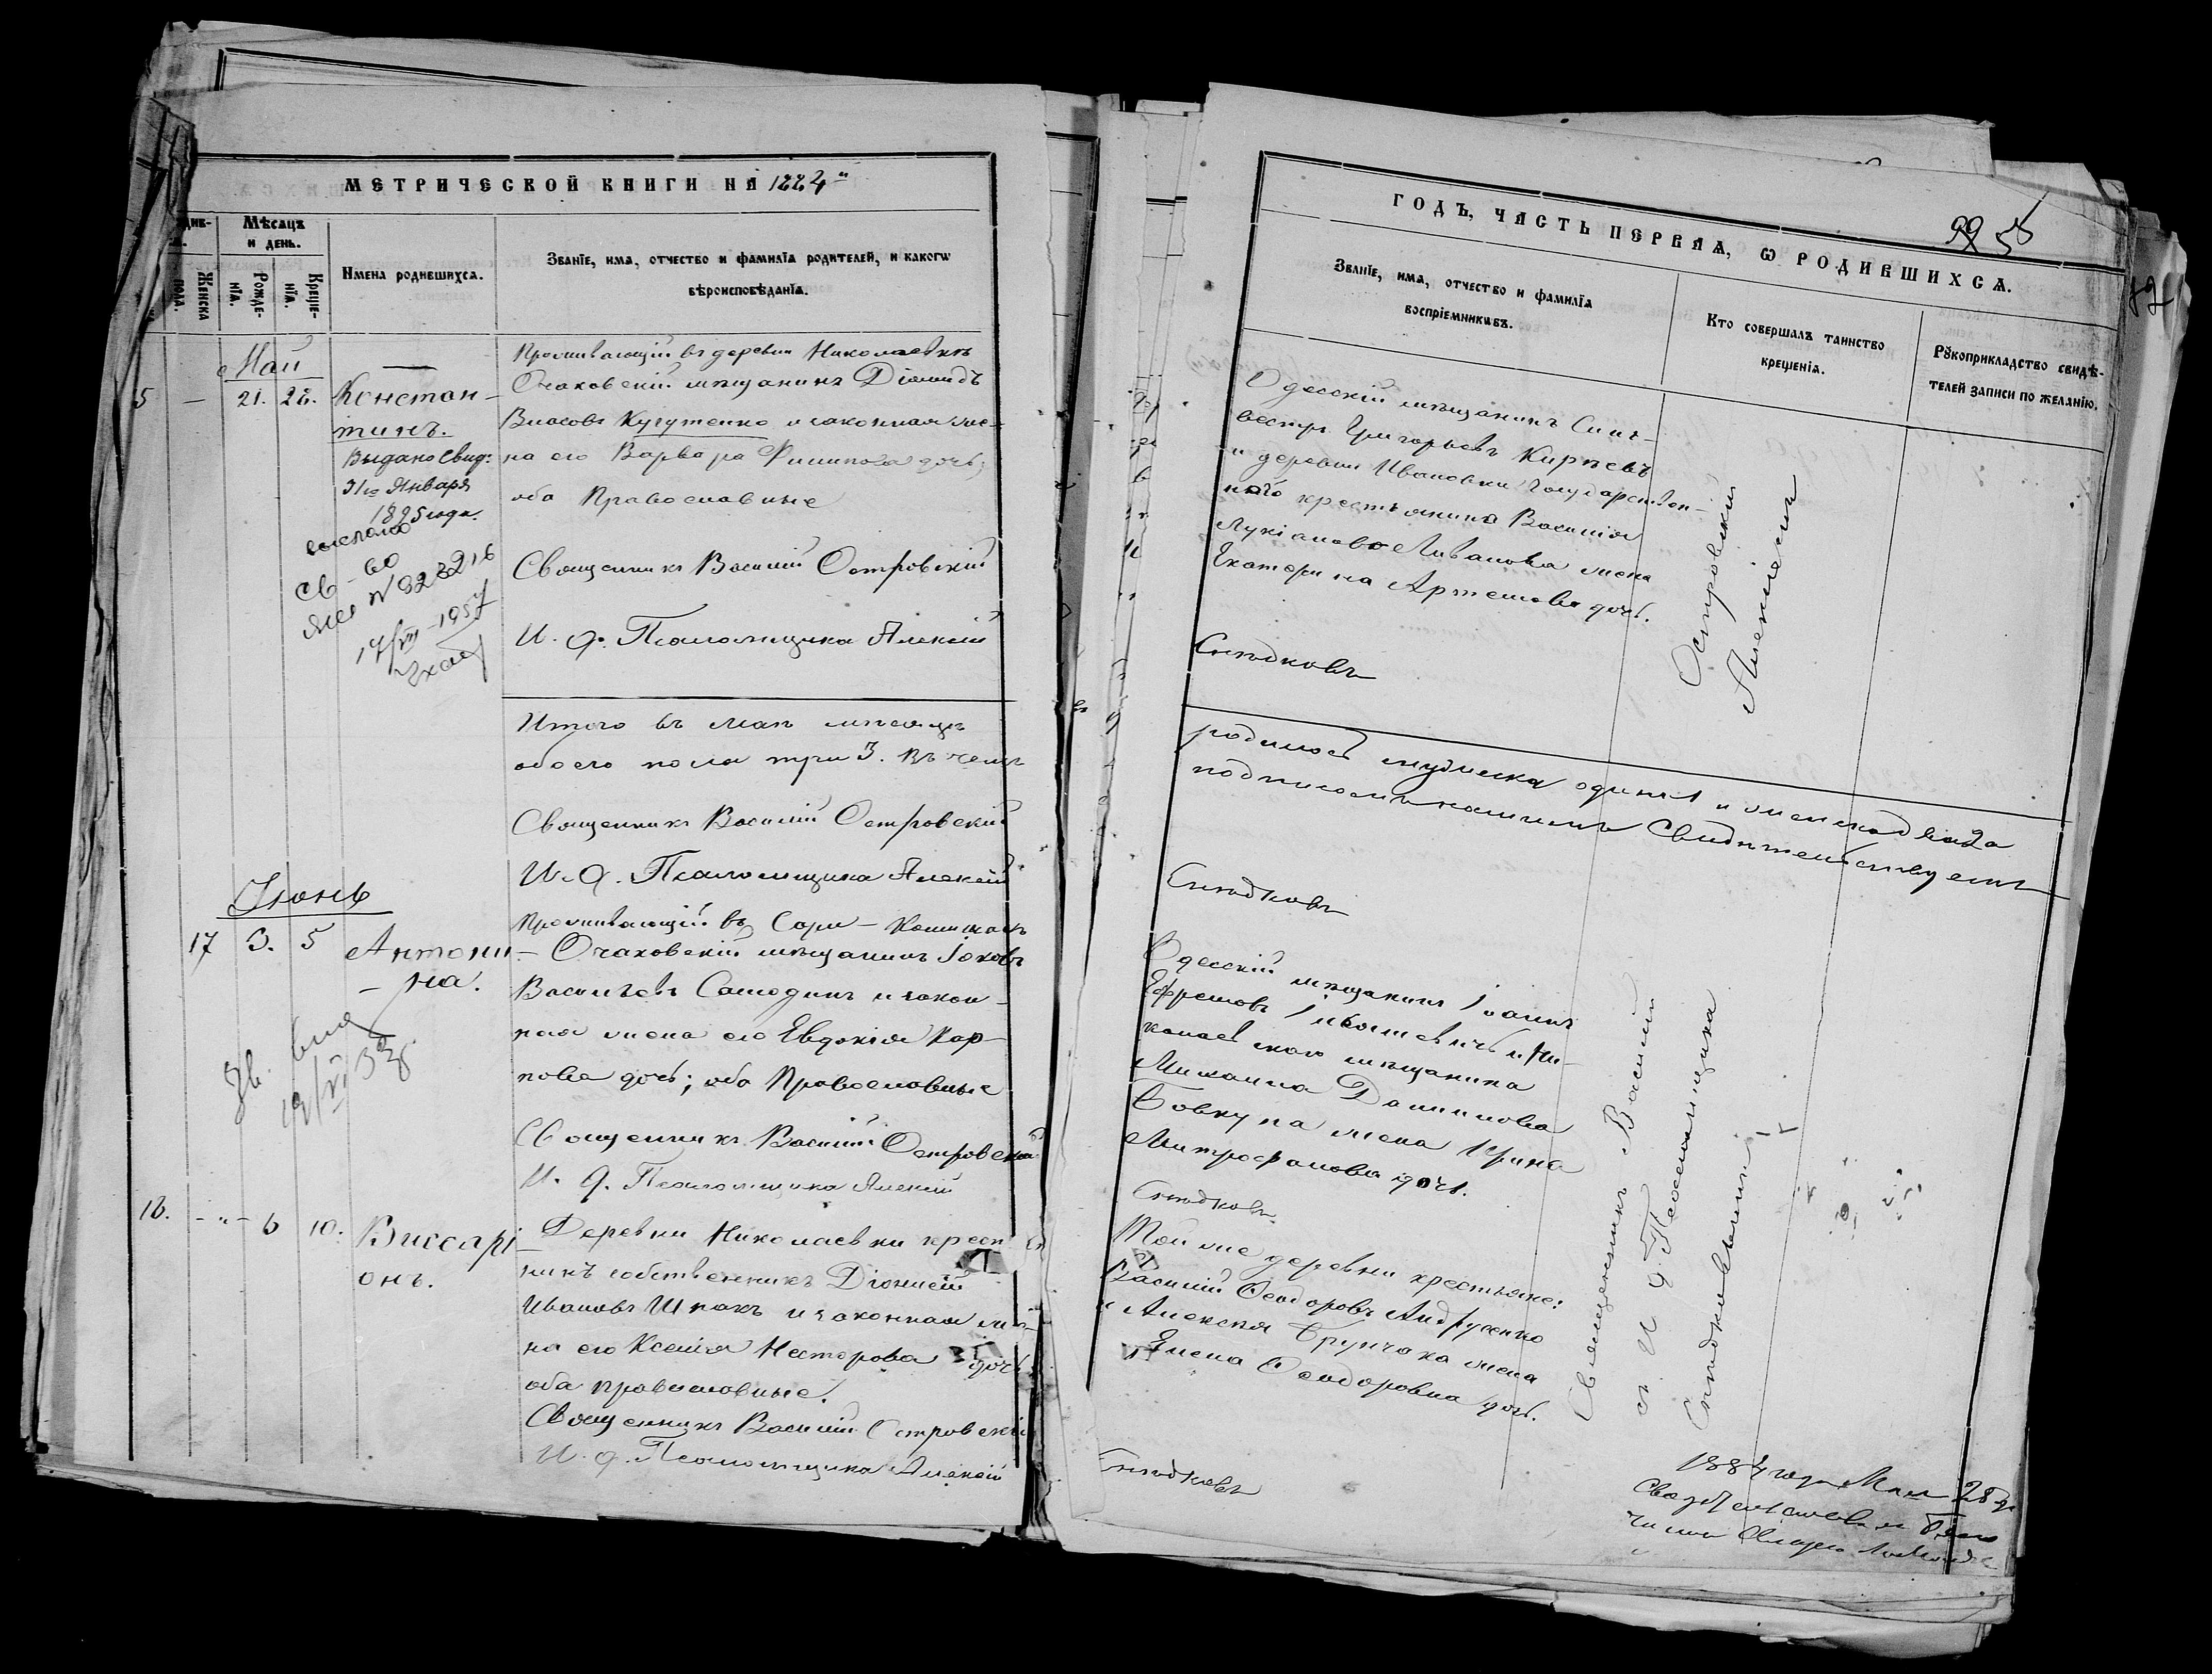 МЕТРИЧЕСКОЙ КНИГИ НА 1884
Мѣсяцъ
и день.
Женска
пола.
Рожде-
нїя.
Креще-
нїя.
Имена родившихся.
Званїе, имя, отчество и фамилїя родителей, и какогѡ
вѣроисповѣданїя.
Май
5 — 21. 28.
Констан-
тинъ.
Выдано Свид:
31го Января
1895 года.
Проживающій въ деревни Николаевкѣ
Очаковскій мѣщанинъ Діомидъ
Власовъ Кугутенко и законная же-
на его Варвара Филипова дочь,
оба Православные
Священникъ Василій Островскій
И. д. Псаломщика Алексій
Итого въ маѣ мѣсяцѣ
обоего пола три 3. Въ чемъ
Священникъ Василій Островскій
И. д. Псаломщика Алексій
Іюнь
17 3. 5
Антони-
на.
Проживающій въ Сари-Камышахъ
Очаковскій мѣщанинъ Іаковъ
Васильевъ Самодинъ и закон-
ная жена его Евдокія Кар-
пова дочь; оба Православные
Священникъ Василій Островскій
И. д. Псаломщика Алексій
16. - " - 6 10.
Виссарі-
онъ.
Деревни Николаевки крест
нинъ собственникъ Діонисій
Ивановъ Шпакъ и законная же-
на его Ксенія Несторова дочь
оба православные.
Священникъ Василій Островскій
И. д. Псаломщика Алексій
ГОДЪ, ЧАСТЬ ПЕРВАЯ, Ѡ РОДИВШИХСЯ.
99 58
Званїе, имя, отчество и фамилїя
воспрїемникѡвъ.
Кто совершалъ таинство
крещенїя.
Рꙋкоприкладство свидѣ-
телей записи по желанїю.
Одесскій мѣщанинъ Силь-
вестръ Григорьевъ Кирѣевъ
и деревни Ивановки Государствен-
наго крестьянина Василія
Лукіанова Ливанова жена
Екатерина Артемова дочь.
Островскій
Алексіемъ
Снѣдковъ
родилось мужеска одинъ 1 и женска два 2а
подписомъ нашимъ свидѣтельствуемъ
Снѣдковъ
Одесскій мѣщанинъ Іоаннъ
Ефремовъ
колаевскаго мѣщанина
Михаила Даниилова
Бовкуна жена Ирина
Митрофанова дочь.
Снѣдковъ
Той же деревни крестьяне:
Василій Ѳеодоровъ Андрусенко
и Алексѣя жена
Елена Ѳеодоровна дочь.
Снѣдковъ
Священникъ Василій
съ И. д. Псаломщика
1884 года Мая 28 дня